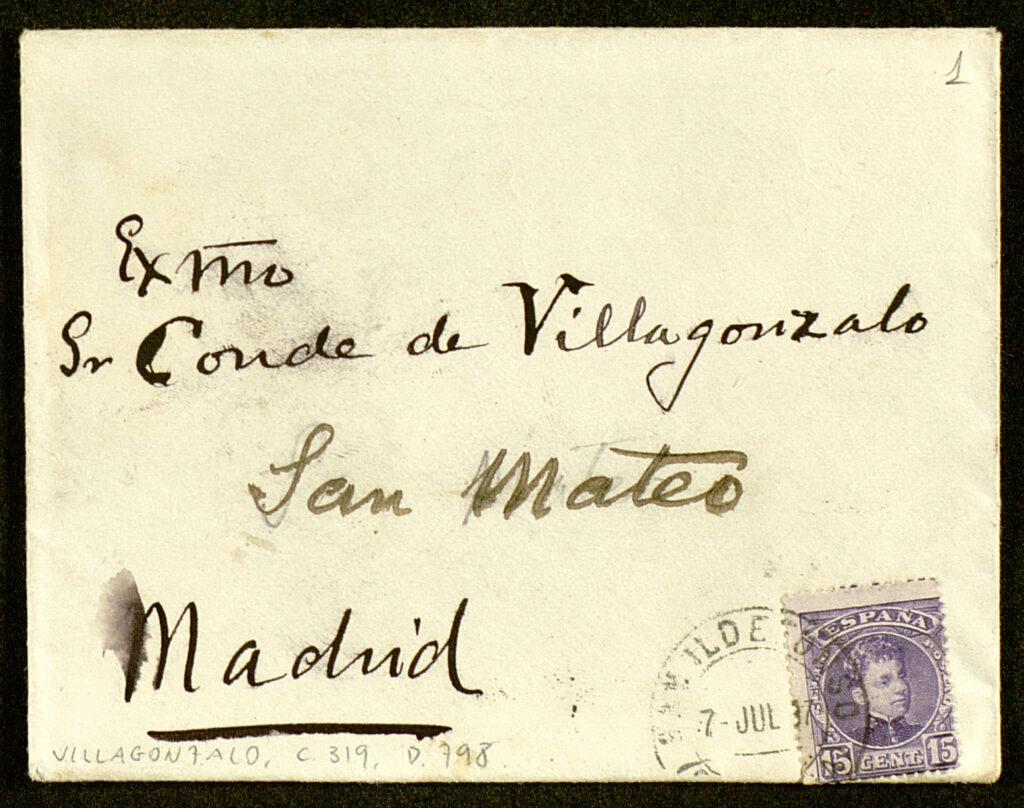 1
Exmo
Sr Conde de Villagonzalo
San Mateo
Madrid
ILDEFONSO
7-JUL 07
ESPAÑA
15 CENT 15
VILLAGONZALO, C. 319, D. 798